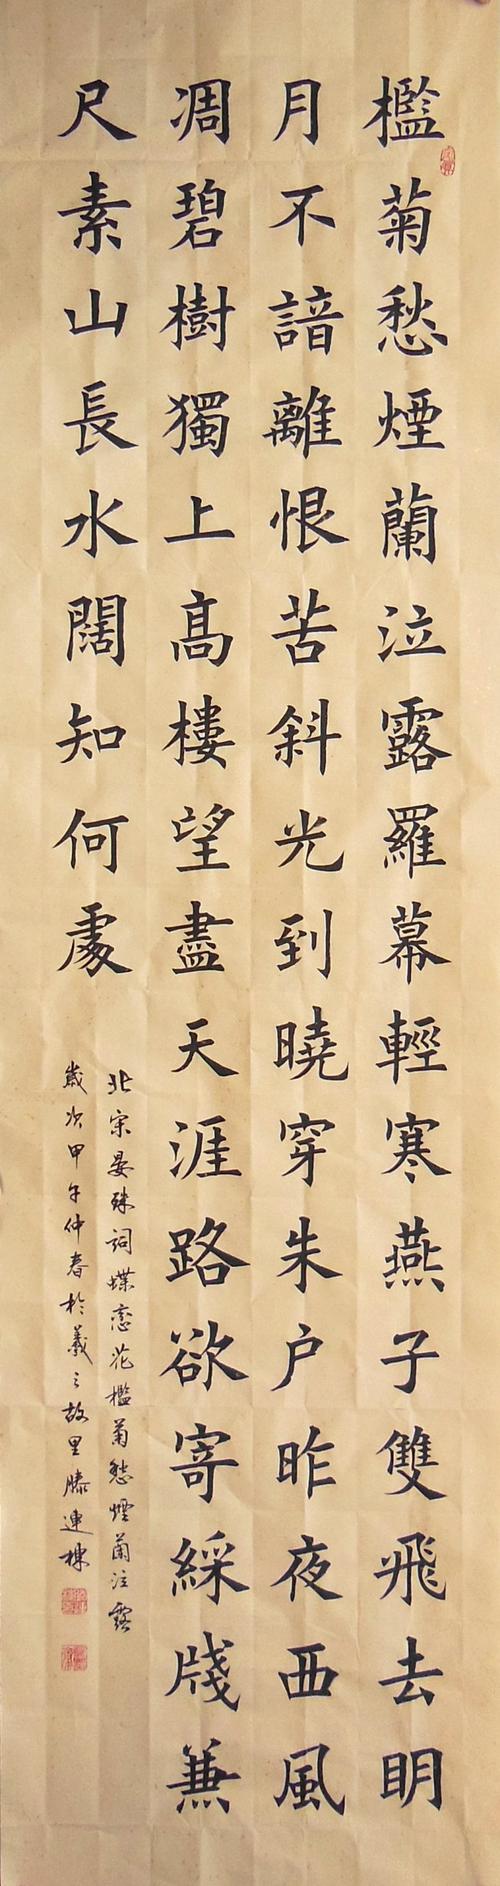 檻菊愁煙蘭泣露羅幕輕寒燕子雙飛去明
月不諳離恨苦斜光到曉穿朱户昨夜西風
凋碧樹獨上高樓望盡天涯路欲寄綵牋兼
尺素山長水闊知何處
北宋晏殊詞蝶恋花檻菊愁煙蘭泣露
歲次甲午仲春於羲之故里滕連棟